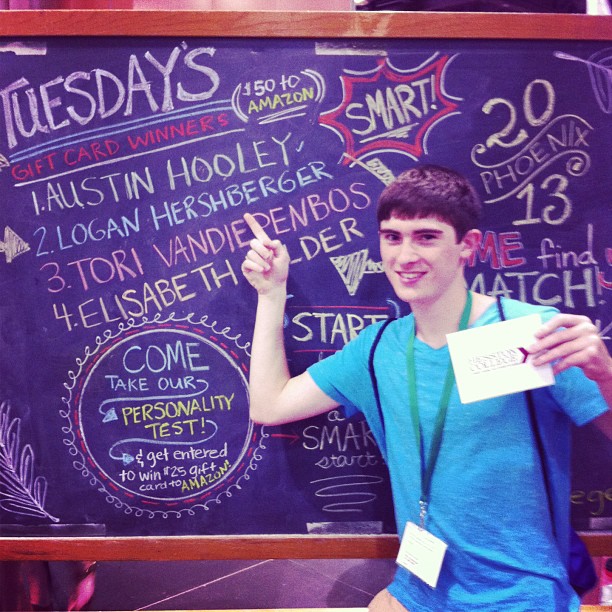 TUESDAY'S
GIFT CARD WINNERS
$50 to
AMAZON
SMART!
20
PHOENIX
13
1. AUSTIN HOOLEY
2. LOGAN HERSHBERGER
3. TORI VANDIEPENBOS
4. ELISABETH LDER
ME find
MATCH!
START
a
SMAR
start
COME
TAKE OUR
PERSONALITY
TEST!
& get entered
to win $25 gift
card to AMAZON!
COLLEGE